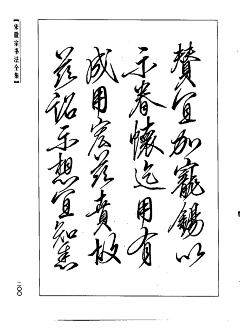 賛宜加寵錫以
示眷懷迄用有
成用宏茲賁故
茲詔示想宜知悉
【宋徽宗书法全集】
二〇〇